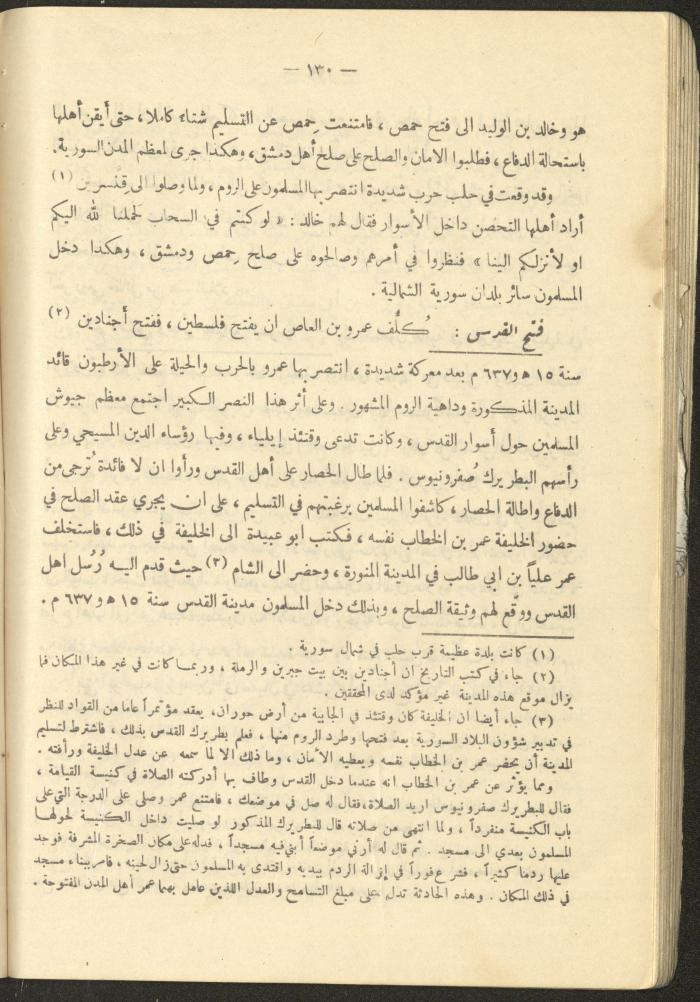 — ١٣٠ —
هو وخالد بن الوليد الى فتح حمص ، فامتنعت حِمص عن التسليم شتاء كاملا ، حتى أيقن أهلها
باستحالة الدفاع ، فطلبوا الامان والصلح على صلح أهل دمشق ، وهكذا جرى لمعظم المدن السورية.
وقد وقعت في حلب حرب شديدة انتصر بها المسلمون على الروم ، ولما وصلوا الى قنسرين (١)
أراد أهلها التحصن داخل الأسوار فقال لهم خالد : « لو كنتم في السحاب لحملنا الله اليكم
او لأنزلكم الينا » فنظروا في أمرهم وصالحوه على صلح حِمص ودمشق ، وهكذا دخل
المسلمون سائر بلدان سورية الشمالية .
فتح القدس : كُلِّف عمرو بن العاص ان يفتح فلسطين ، ففتح أجنادين (٢)
سنة ١٥ ه و ٦٣٧ م بعد معركة شديدة ، انتصر بها عمرو بالحرب والحيلة على الأرطبون قائد
المدينة المذكورة وداهية الروم المشهور . وعلى أثر هذا النصر الكبير اجتمع معظم جيوش
المسلمين حول أسوار القدس ، وكانت تدعى وقتئذ إيلياء ، وفيها رؤساء الدين المسيحي وعلى
رأسهم البطريرك صُفرونيوس . فلما طال الحصار على أهل القدس ورأوا ان لا فائدة تُرجى من
الدفاع واطالة الحصار ، كاشفوا المسلمين برغبتهم في التسليم ، على ان يجري عقد الصلح في
حضور الخليفة عمر بن الخطاب نفسه ، فكتب ابو عبيدة الى الخليفة في ذلك ، فاستخلف
عمر علياً بن ابي طالب في المدينة المنورة ، وحضر الى الشام (٣) حيث قدم اليه رُسُل اهل
القدس ووقّع لهم وثيقة الصلح ، وبذلك دخل المسلمون مدينة القدس سنة ١٥ ه و ٦٣٧ م .
(١) كانت بلدة عظيمة قرب حلب في شمال سورية .
(٢) جاء في كتب التاريخ ان أجنادين بين بيت جبرين والرملة ، وربما كانت في غير هذا المكان فما
يزال موقع هذه المدينة غير مؤكد لدى المحققين .
(٣) جاء أيضا ان الخليفة كان وقتئذ في الجابية من أرض حوران ، يعقد مؤتمراً عاما من القواد للنظر
في تدبير شؤون البلاد السورية بعد فتحها وطرد الروم منها ، فعلم بطريرك القدس بذلك ، فاشترط لتسليم
المدينة أن يحضر عمر بن الخطاب نفسه ويعطيه الأمان ، وما ذلك الا لما سمعه عن عدل الخليفة ورأفته .
ومما يؤثر عن عمر بن الخطاب انه عندما دخل القدس وطاف بها أدركته الصلاة في كنيسة القيامة ،
فقال للبطريرك صفرونيوس اريد الصلاة ، فقال له صل في موضعك ، فامتنع عمر وصلى على الدرجة التي على
باب الكنيسة منفرداً ، ولما انتهى من صلاته قال للبطريرك المذكور لو صليت داخل الكنيسة لحولها
المسلمون بعدي الى مسجد . ثم قال له أرني موضعاً أبني فيه مسجداً ، فدله على مكان الصخرة المشرفة فوجد
عليها ردما كثيراً ، فشرع فوراً في إزالة الردم بيديه واقتدى به المسلمون حتى زال لحينه ، فأمر ببناء مسجد
في ذلك المكان . وهذه الحادثة تدل على مبلغ التسامح والعدل اللذين عامل بهما عمر أهل المدن المفتوحة .